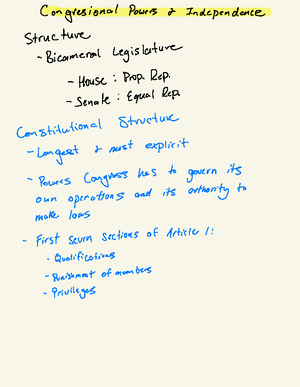 Congresional Powers & Independence
Structure
- Bicameral Legislature
- House : Prop. Rep.
- Senate : Equal Rep.
Constitutional Structure
- Longest & most explicit
- Powers Congress has to govern its
own operations and its authority to
make laws
- First seven Sections of Article 1:
- Qualifications
- Punishment of members
- Privileges